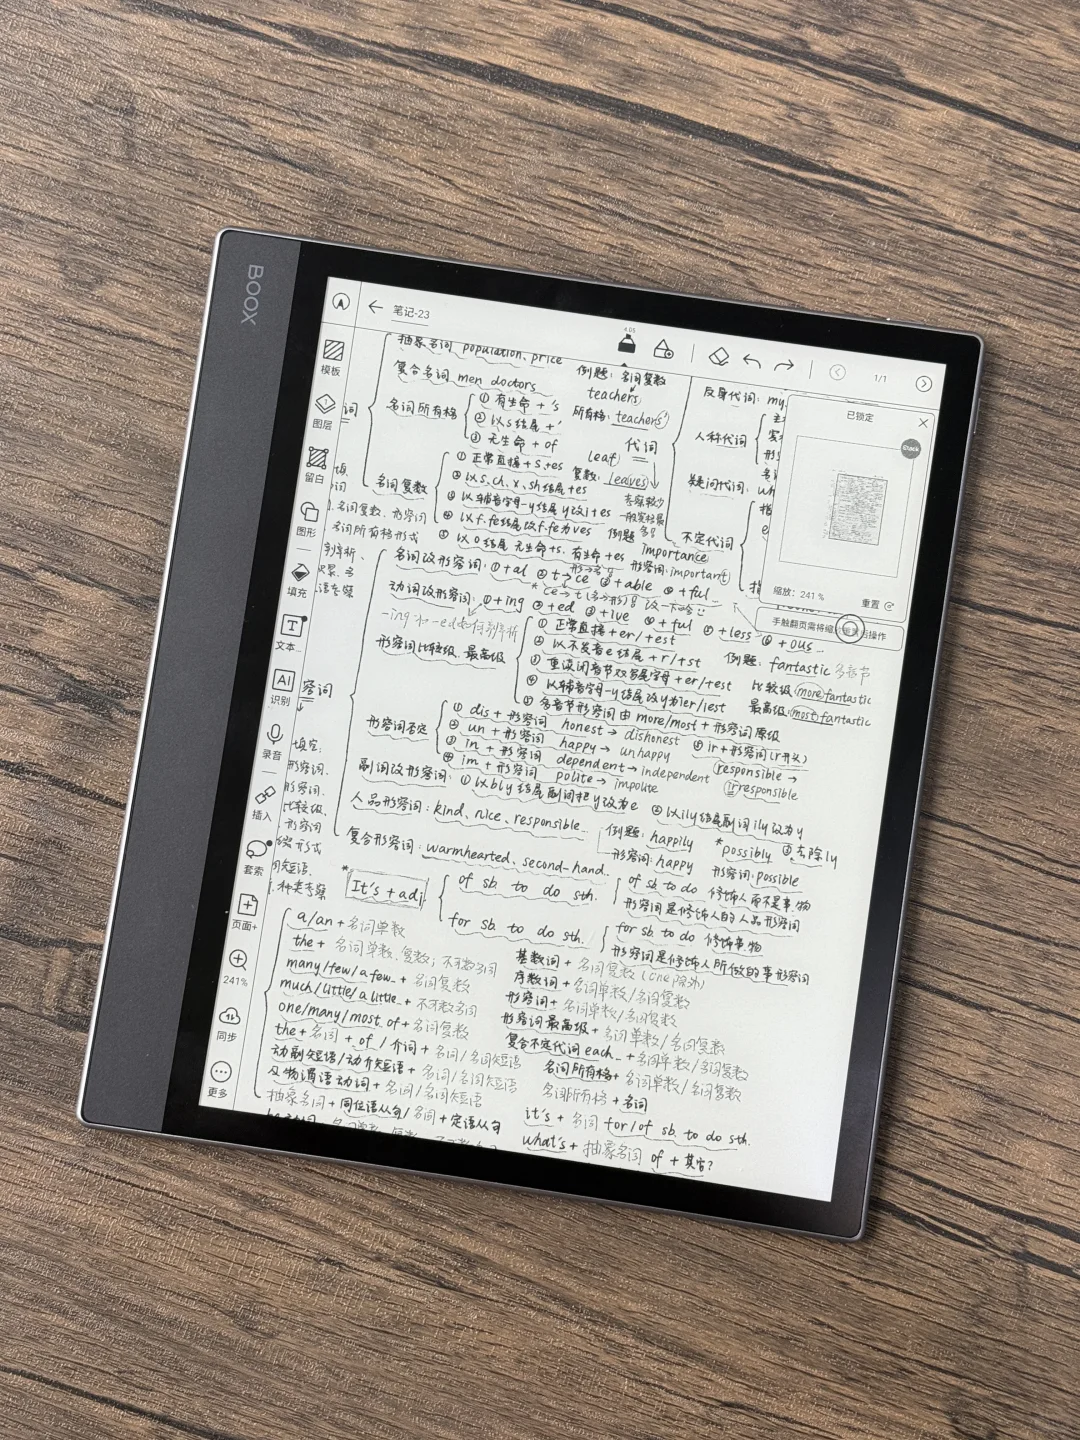 BOOX
笔记-23
4.05
1/1
模板
图层
留白
图形
填充
文本
识别
录音
插入
套索
页面+
241%
同步
更多
已锁定
Stack
缩放：241 %
重置
手触翻页需将缩 操作
抽象名词 population、price
复合名词 men doctors
名词所有格
① 有生命 + 's
② 以s结尾 + '
③ 无生命 + of
例题：名词复数
teachers
所有格：teachers'
代词
leaf
复数：leaves
名词复数
① 正常直接 + s、+es
② 以s、ch、x、sh结尾 +es
③ 以辅音字母-y结尾 y改i+es
④ 以f、fe结尾 改f、fe为ves
⑤ 以o结尾 无生命+s、有生命+es
例题 importance
形容词：important
反身代词：my
人称代词
疑问代词：
不定代词
名词改形容词：① +al ② t→ce ③ +able ④ +ful
动词改形容词：① +ing ② +ed ③ +ive ④ +ful ⑤ +less ⑥ +ous
形容词比较级、最高级
① 正常直接 + er/+est
② 以不发音e结尾 + r/+st
③ 重读闭音节双写尾字母 + er/+est
④ 以辅音字母-y结尾 改y为ier/iest
⑤ 多音节形容词 由 more/most + 形容词原级
例题：fantastic 多音节
比较级：more fantastic
最高级：most fantastic
形容词否定
① dis + 形容词 honest → dishonest
② un + 形容词 happy → unhappy
③ in + 形容词 dependent → independent
④ im + 形容词 polite → impolite
⑤ ir + 形容词(r开头)
responsible →
irresponsible
副词改形容词：① 以bly结尾副词把y改为e ② 以ily结尾副词ily改为y
③ 去除ly
人品形容词：kind、nice、responsible...
例题：happily
形容词：happy
*possibly
形容词：possible
复合形容词：warmhearted、second-hand..
*It's + adj
of sb. to do sth.
for sb. to do sth.
of sb to do 修饰人而不是事物
形容词是修饰人的人品形容词
for sb to do 修饰事物
形容词是修饰人所做的事形容词
a/an + 名词单数
the + 名词单数、复数；不可数名词
many/few/a few + 名词复数
much/little/a little + 不可数名词
one/many/most of + 名词复数
the + 名词 + of / 介词 + 名词/名词短语
动副短语/动介短语 + 名词/名词短语
及物谓语动词 + 名词/名词短语
抽象名词 + 同位语从句/名词 + 定语从句
基数词 + 名词复数 (one除外)
序数词 + 名词单数/名词复数
形容词 + 名词单数/名词复数
形容词最高级 + 名词单数/名词复数
复合不定代词 each... + 名词单数/名词复数
名词所有格 + 名词单数/名词复数
名词所有格 + 名词
it's + 名词 for/of sb. to do sth.
what's + 抽象名词 of + 其它?